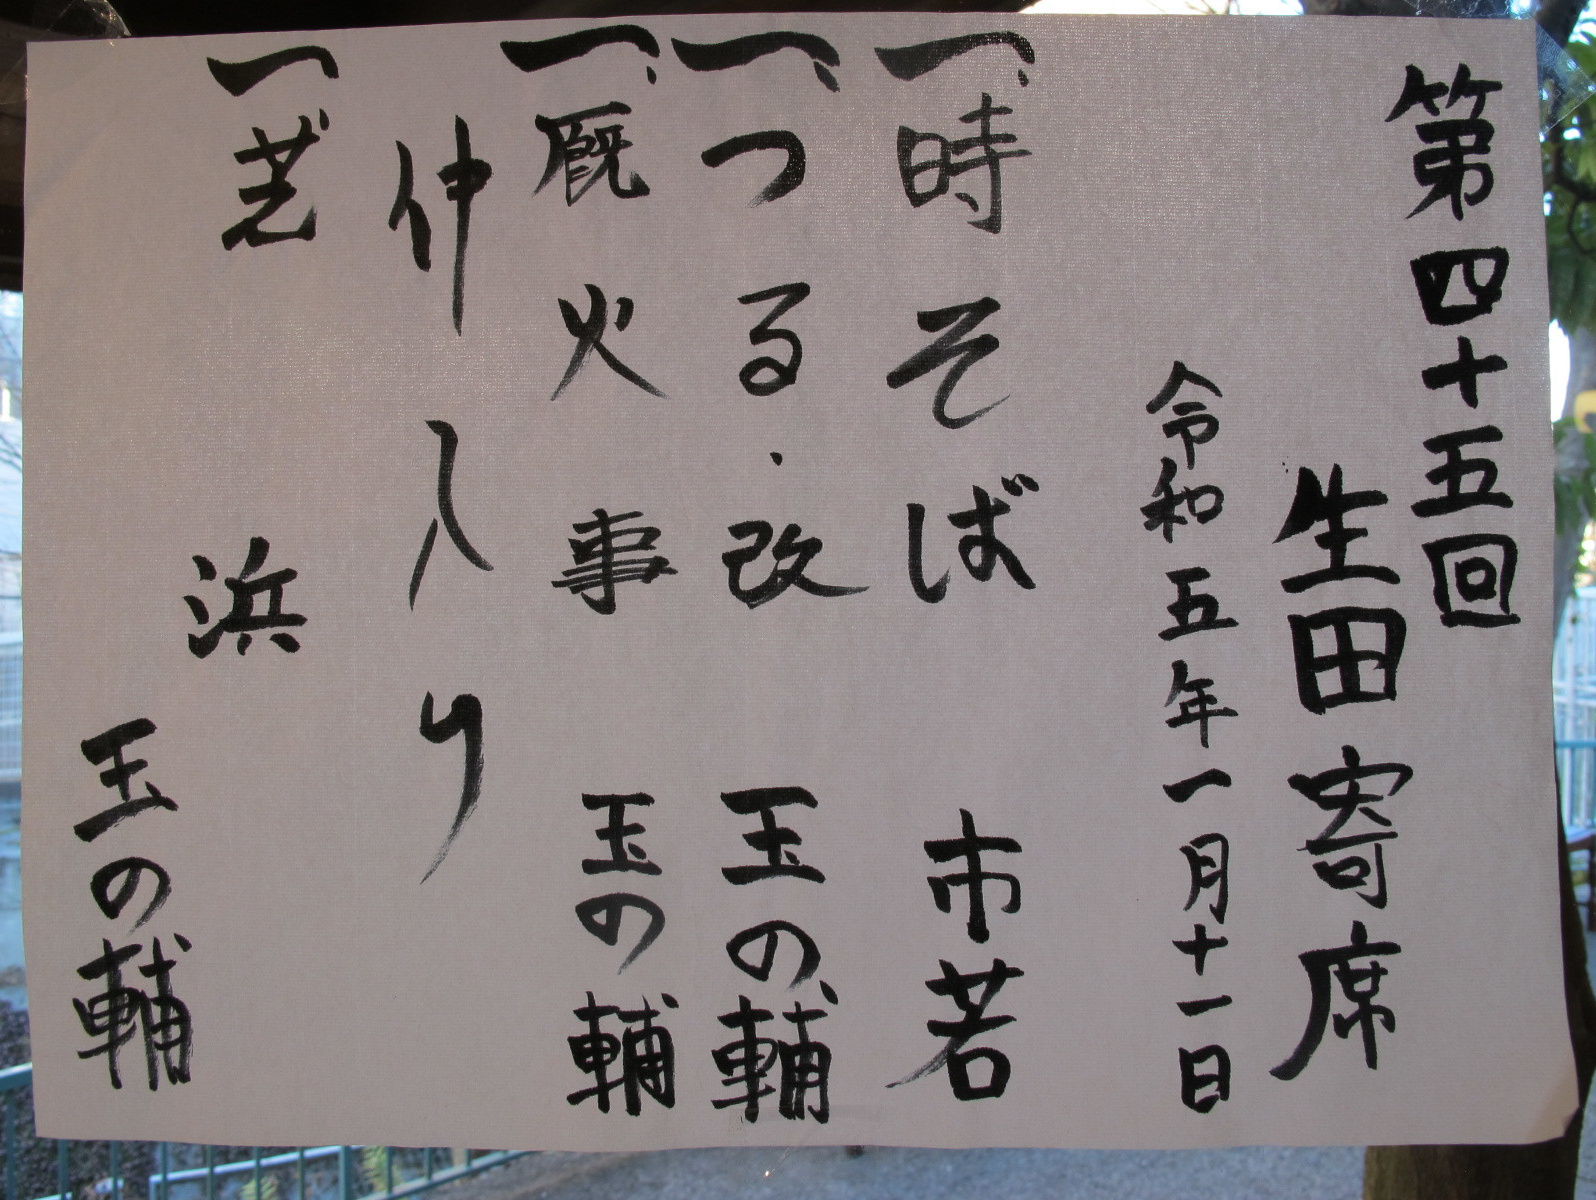 第四十五回
生田寄席
令和五年一月十一日
一、時そば 市若
一、つる・改 玉の輔
一、厩火事 玉の輔
仲入り
一芝浜 玉の輔